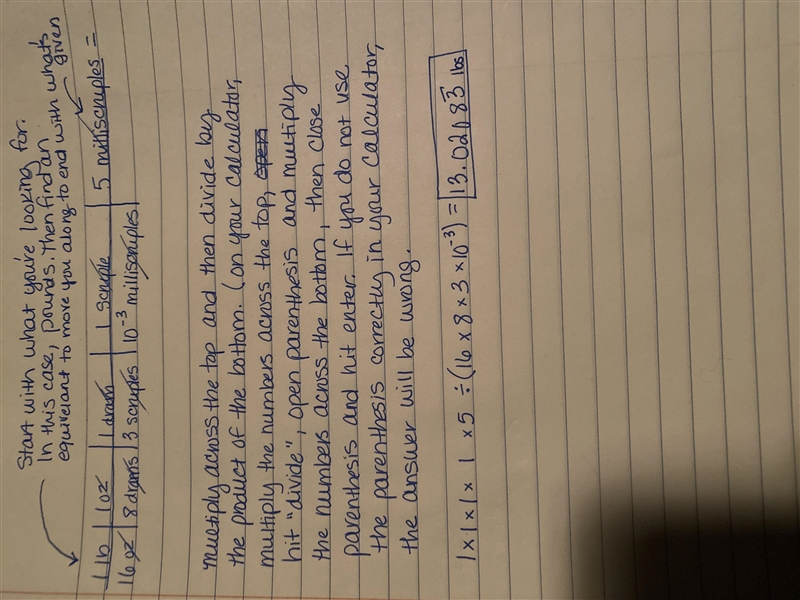 Start with what you're looking for.
In this case, pounds. Then find an
equivelant to move you along to end with what's given
1 lb | 1 oz | 1 dram | 1 scruple | 5 milliscruples =
16 oz | 8 drams | 3 scruples | 10⁻³ milliscruples |
multiply across the top and then divide by
the product of the bottom. (on your calculator,
multiply the numbers across the top, open
hit "divide", open parenthesis and multiply
the numbers across the bottom, then close
parenthesis and hit enter. If you do not use
the parenthesis correctly in your calculator,
the answer will be wrong.
1 x 1 x 1 x 1 x 5 ÷ (16 x 8 x 3 x 10⁻³) = 13.02083̅ lbs